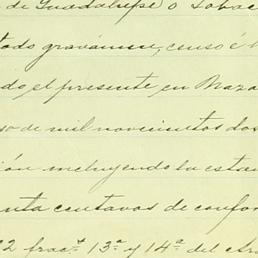 de Guadalupe o Tobac
todo gravámen, censo é h
do, el presente, en Maza
so de mil novecientos dos
ión incluyendo la estam
enta centavos de confor
22 fracs. 13ª y 14ª del Ar